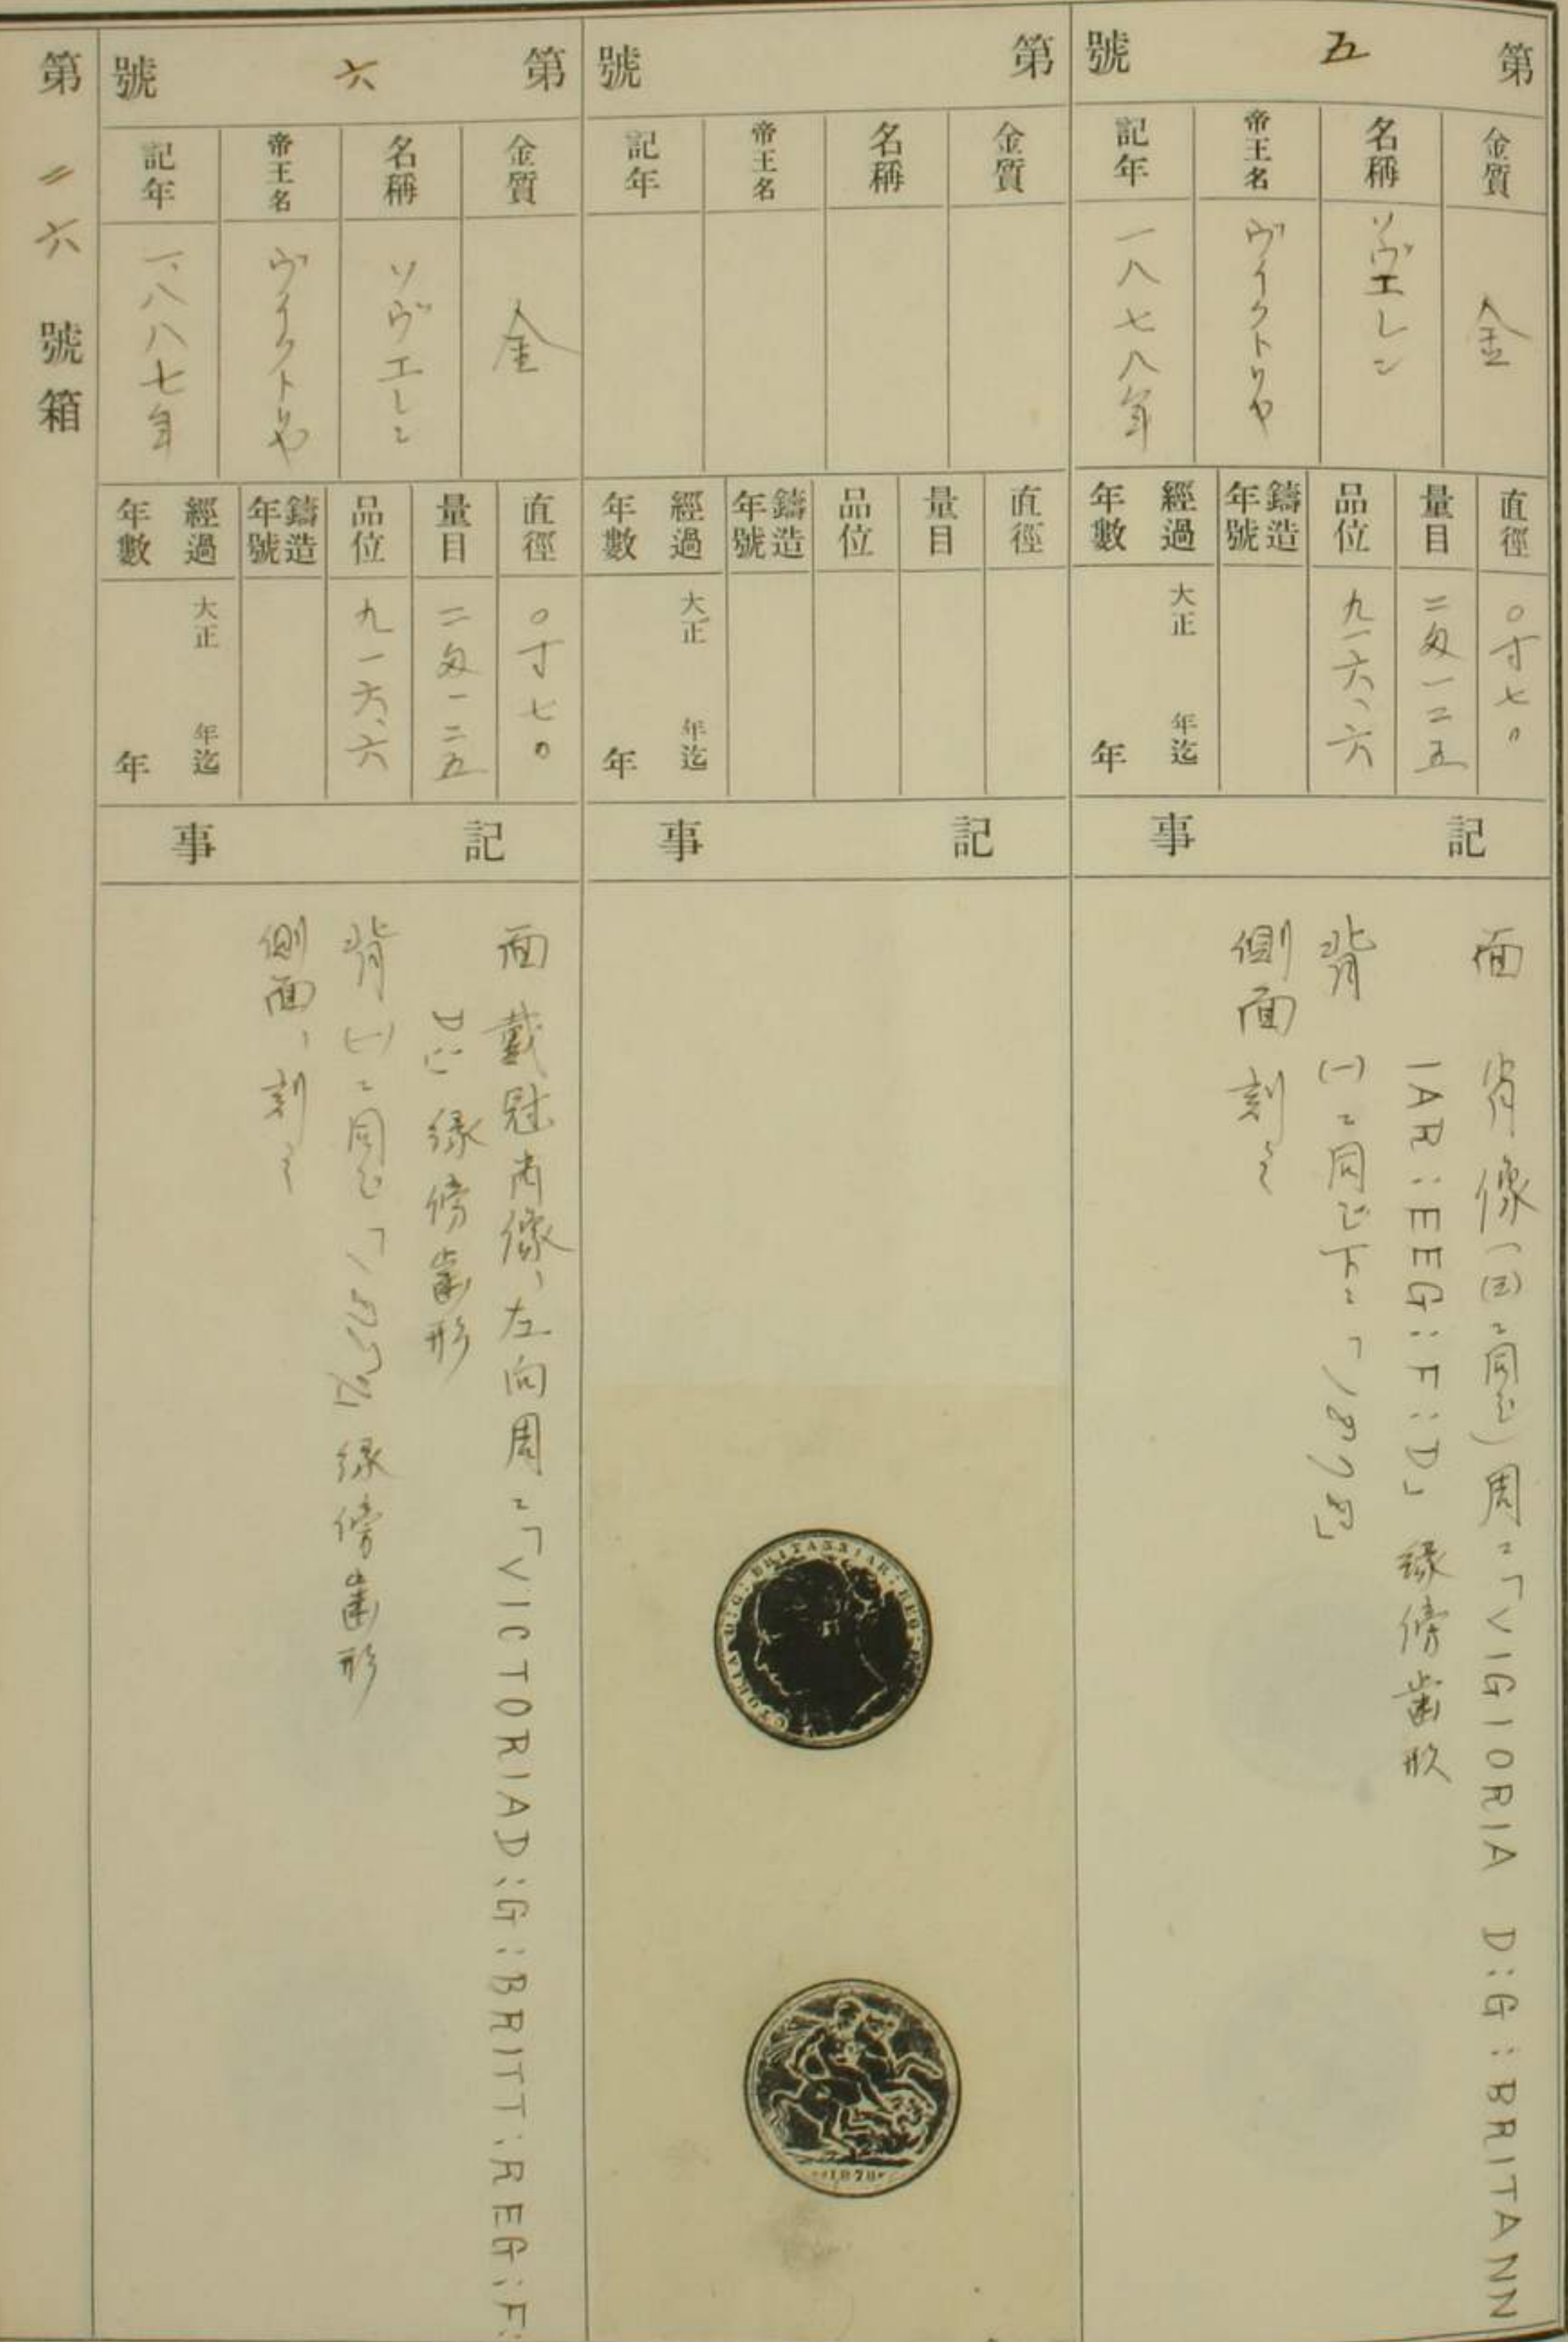 第五號
金質 金
名稱 ソヴエレン
帝王名 ヴイクトリヤ
記年 一八七八年
直徑 〇寸七〇
量目 二匁一二五
品位 九一六、六
鑄造年號
經過年數 大正 年迄 年
記事
面 肖像(㈢ニ同ジ)周ニ「VIGIORIA D:G:BRITANN
IAR:EEG:F:D」緣傍齒形
背 ㈠ニ同ジ下ニ「1878」
側面 刻ミ
第 號
金質
名稱
帝王名
記年
直徑
量目
品位
鑄造年號
經過年數 大正 年迄 年
記事
1878
第六號
金質 金
名稱 ソヴエレン
帝王名 ヴイクトリヤ
記年 一八八七年
直徑 〇寸七〇
量目 二匁一二五
品位 九一六、六
鑄造年號
經過年數 大正 年迄 年
記事
面 戴冠肖像、左向周ニ「VICTORIAD:G:BRITT:REG:F:
D」緣傍齒形
背 ㈠ニ同ジ「 緣傍齒形
側面、刻ミ
第二六號箱